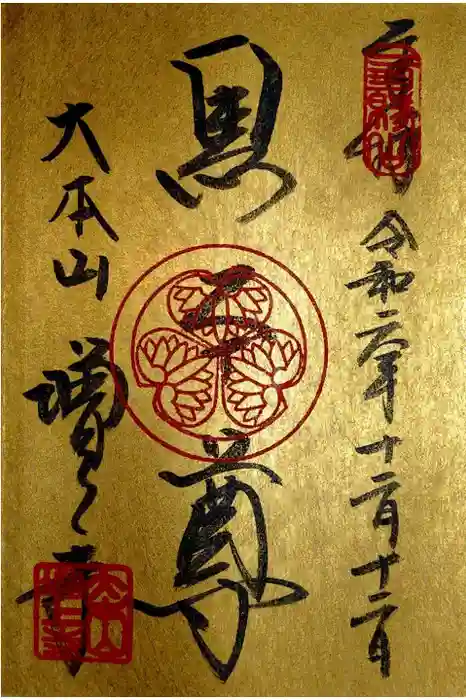 令和六年十二月十二日
黒本尊
大本山 増上寺